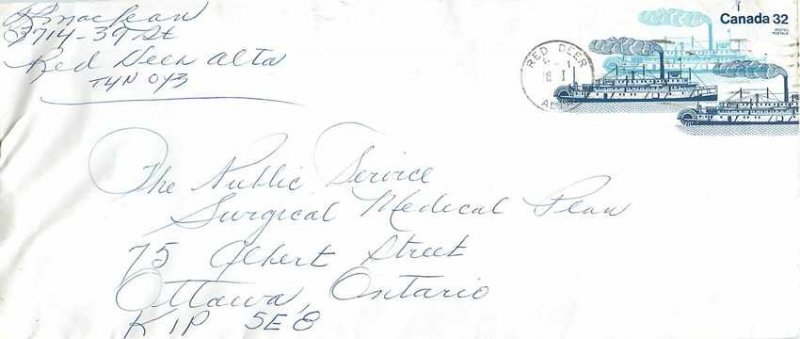 Maclean
3714-39 St
Red Deer Alta
T4N 0Y3
Canada 32
POSTES
POSTAGE
RED DEER
The Public Service
Surgical Medical Plan
75 Albert Street
Ottawa, Ontario
K1P 5E8